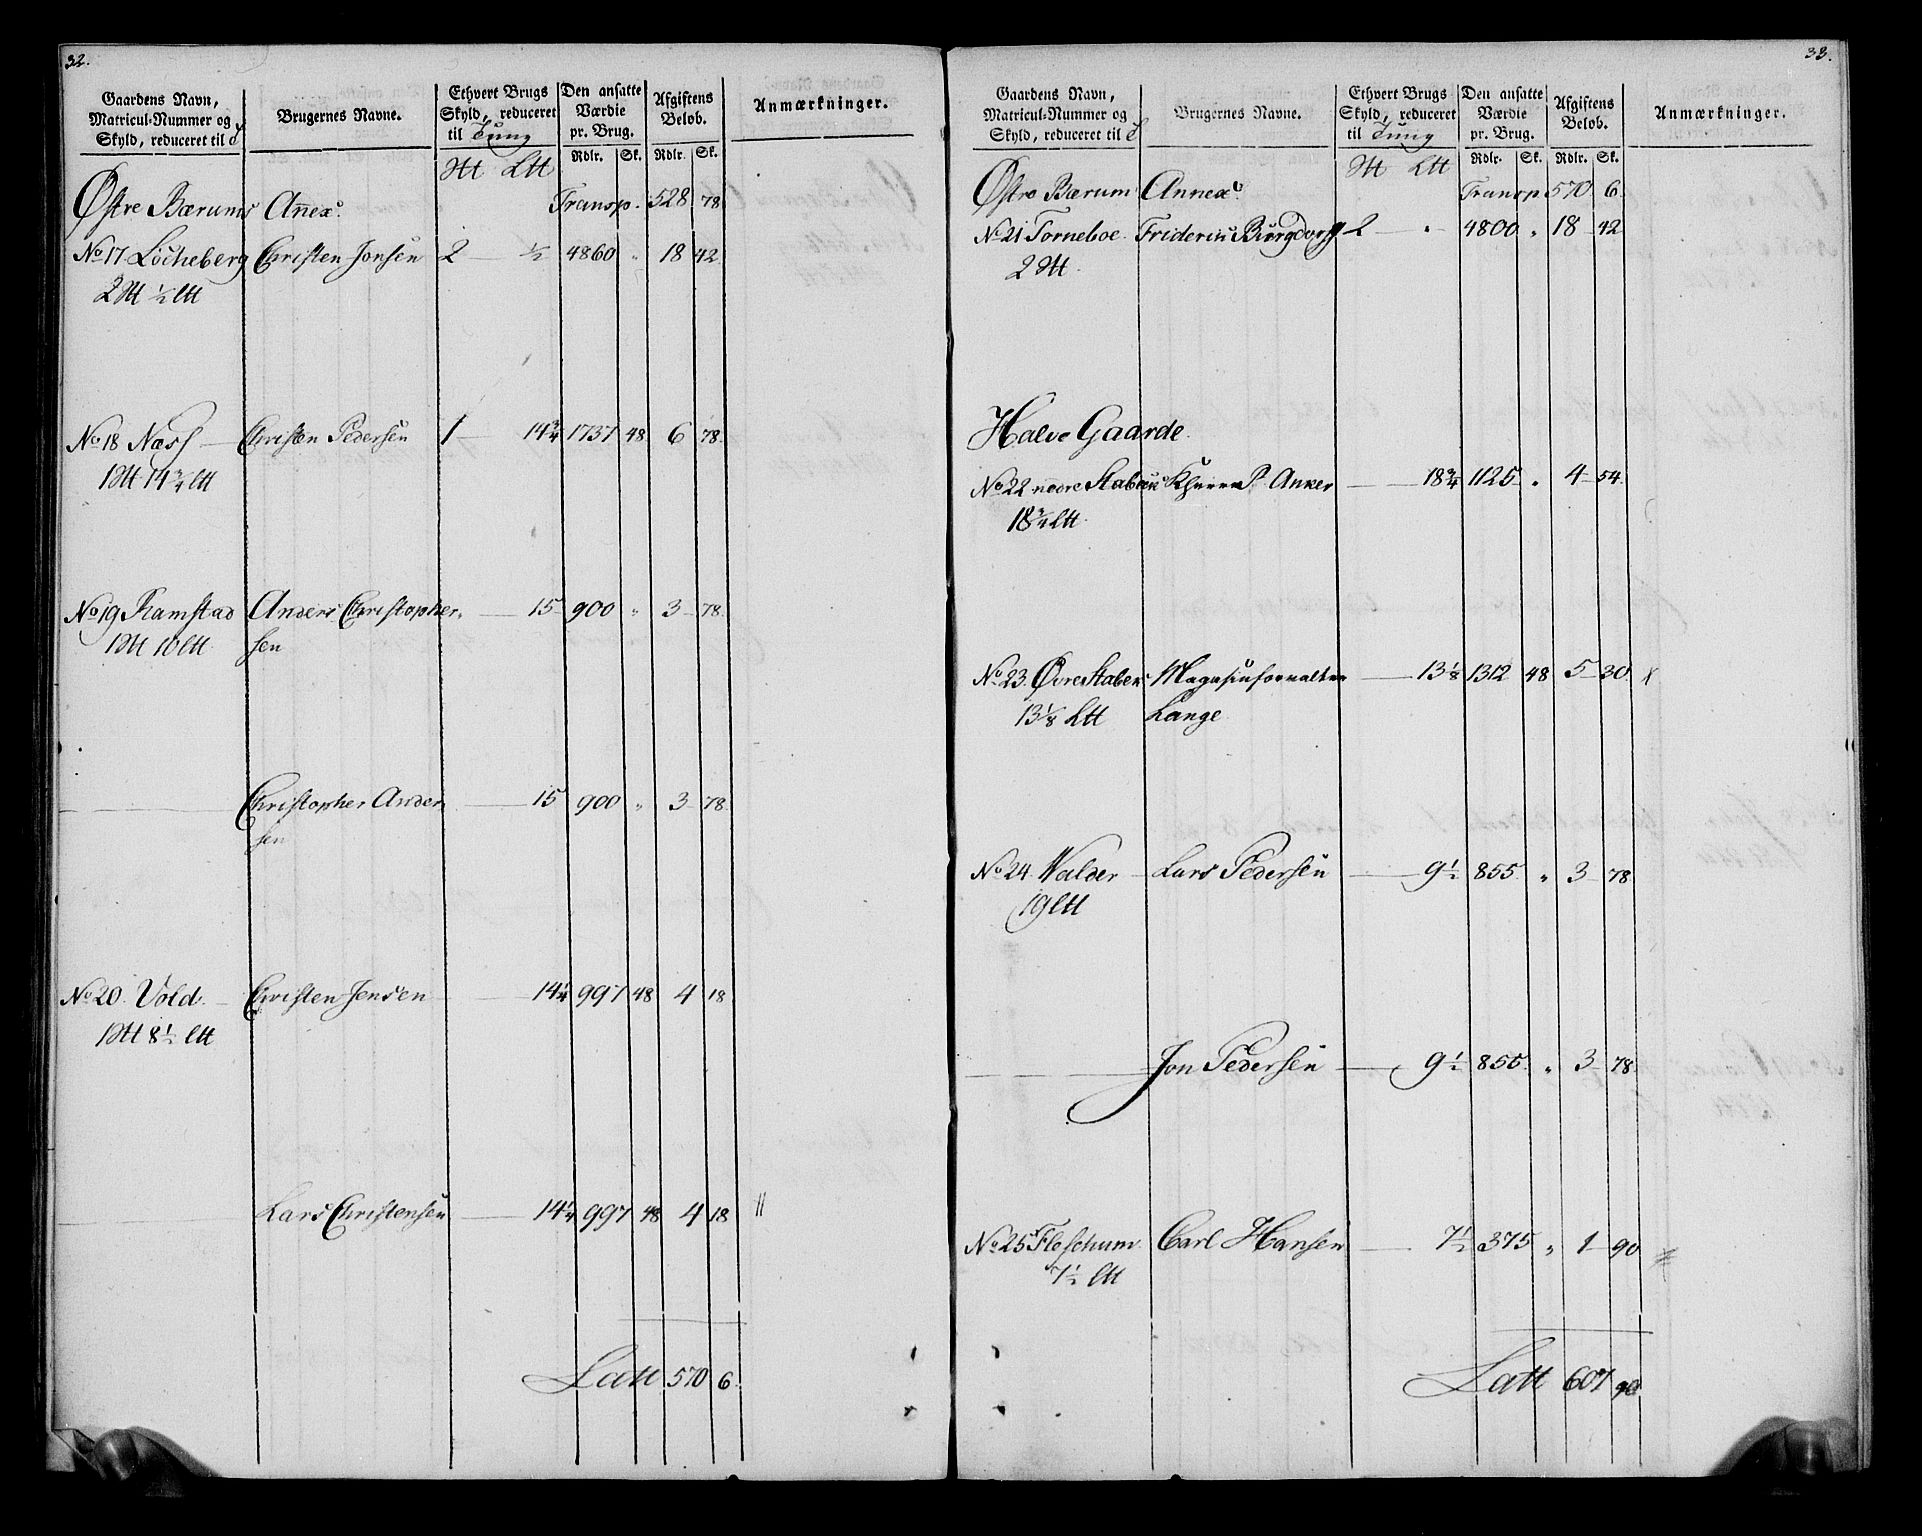 32.
Gaardens Navn, Matricul-Nummer og Skyld, reduceret til T | Brugernes Navne. | Ethvert Brugs Skyld, reduceret til Tung | Den ansatte Værdie pr. Brug. | Afgiftens Beløb. | Anmærkninger.
Rdlr. | Sk. | Rdlr. | Sk.
Østre Bærums Annex. Transp. 528 78
No 17 Locheberg Christen Jonsen 2 — ½ 4860 " 18 42
No 18 Næss — Christen Pedersen 1 — 14¾ 1737 48 6 78
No 19 Ramstad Anders Christopher- — 15 900 " 3 78
sen
Christopher Ander — 15 900 " 3 78
sen
No 20. Vold. — Christen Jensen — 14¼ 997 48 4 18
Lars Christensen — 14¼ 997 48 4 18 //
Latt 570 6
33.
Gaardens Navn, Matricul-Nummer og Skyld, reduceret til T | Brugernes Navne. | Ethvert Brugs Skyld, reduceret til Tung | Den ansatte Værdie pr. Brug. | Afgiftens Beløb. | Anmærkninger.
Rdlr. | Sk. | Rdlr. | Sk.
Østre Bærum Annex. Transp 570 6
No 21 Torneboe Frideric Burgdorff 2 — " 4800 " 18 42
Halve Gaarde.
No 22 nedre P. Anker — 18¾ 1125 " 4 54
No 23. Øvre Magasinforvalter — 13⅛ 1312 48 5 30 x
Lange
No 24. Walder — Lars Pedersen — 9½ 855 " 3 78
Jon Pedersen — 9½ 855 " 3 78
No 25 Fleschum Carl Hansen — 7½ 375 " 1 90
Latt 607 90